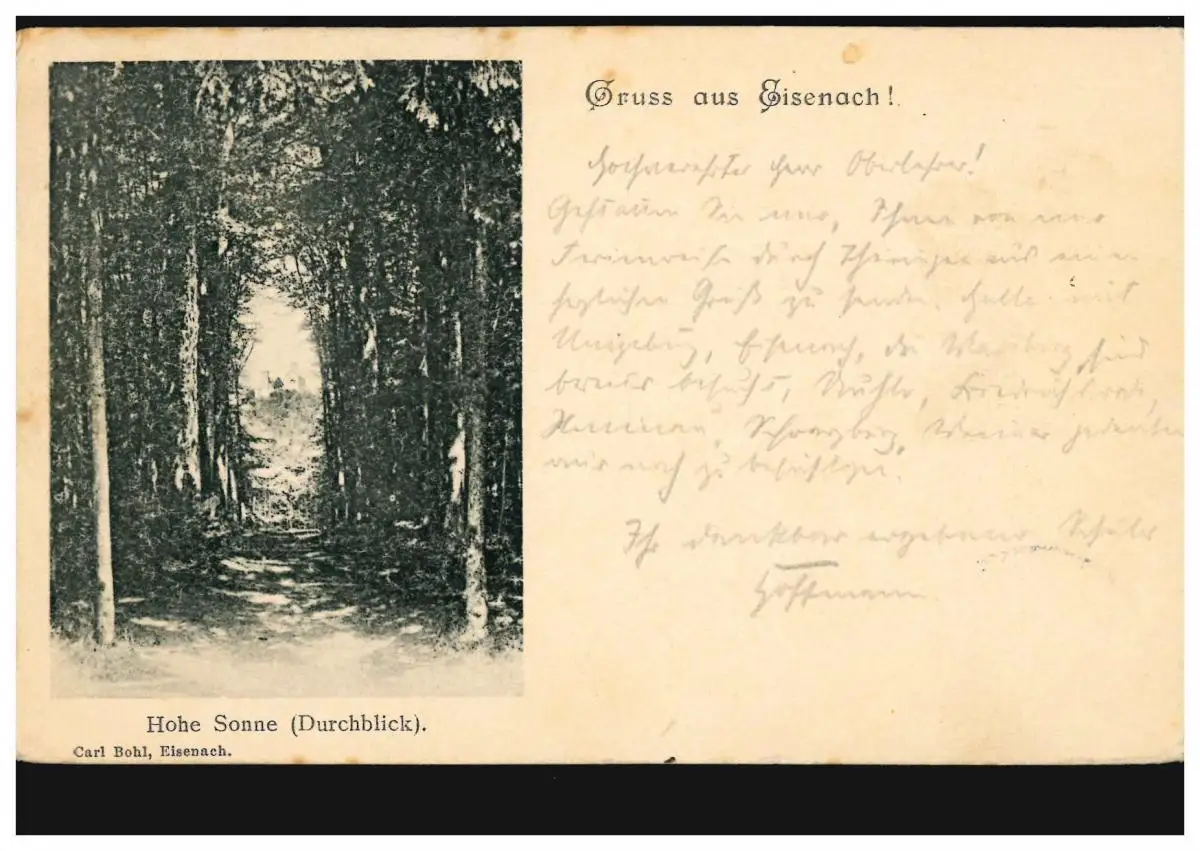 Gruss aus Eisenach!
Hochverehrter Herr Oberlehrer!
Gestatten Sie mir, Ihnen von mir
Ferienreise durch Thüringen aus einen
herzlichen Gruß zu senden. Halle mit
Umgebung, Eisenach, die Wartburg sind
bereits besucht, Ruhla, Friedrichroda,
Ilmenau, Schwarzburg, Weimar gedenke
noch zu besichtigen.
Ihr dankbar ergebener Schüler
Hoffmann
Hohe Sonne (Durchblick).
Carl Bohl, Eisenach.